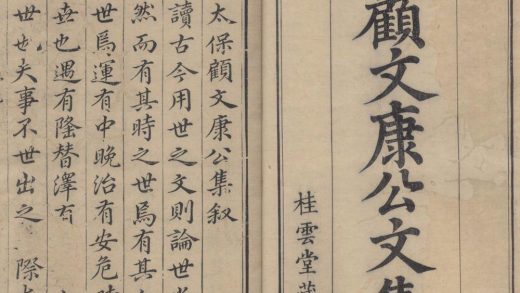 顧文康公文集
桂雲堂藏
太保顧文康公集叙
讀古今用世之文則論世
然而有其時之世焉有其
世焉運有中晚治有安危
去也遇有隆替澤有
世也夫事不世出之 際